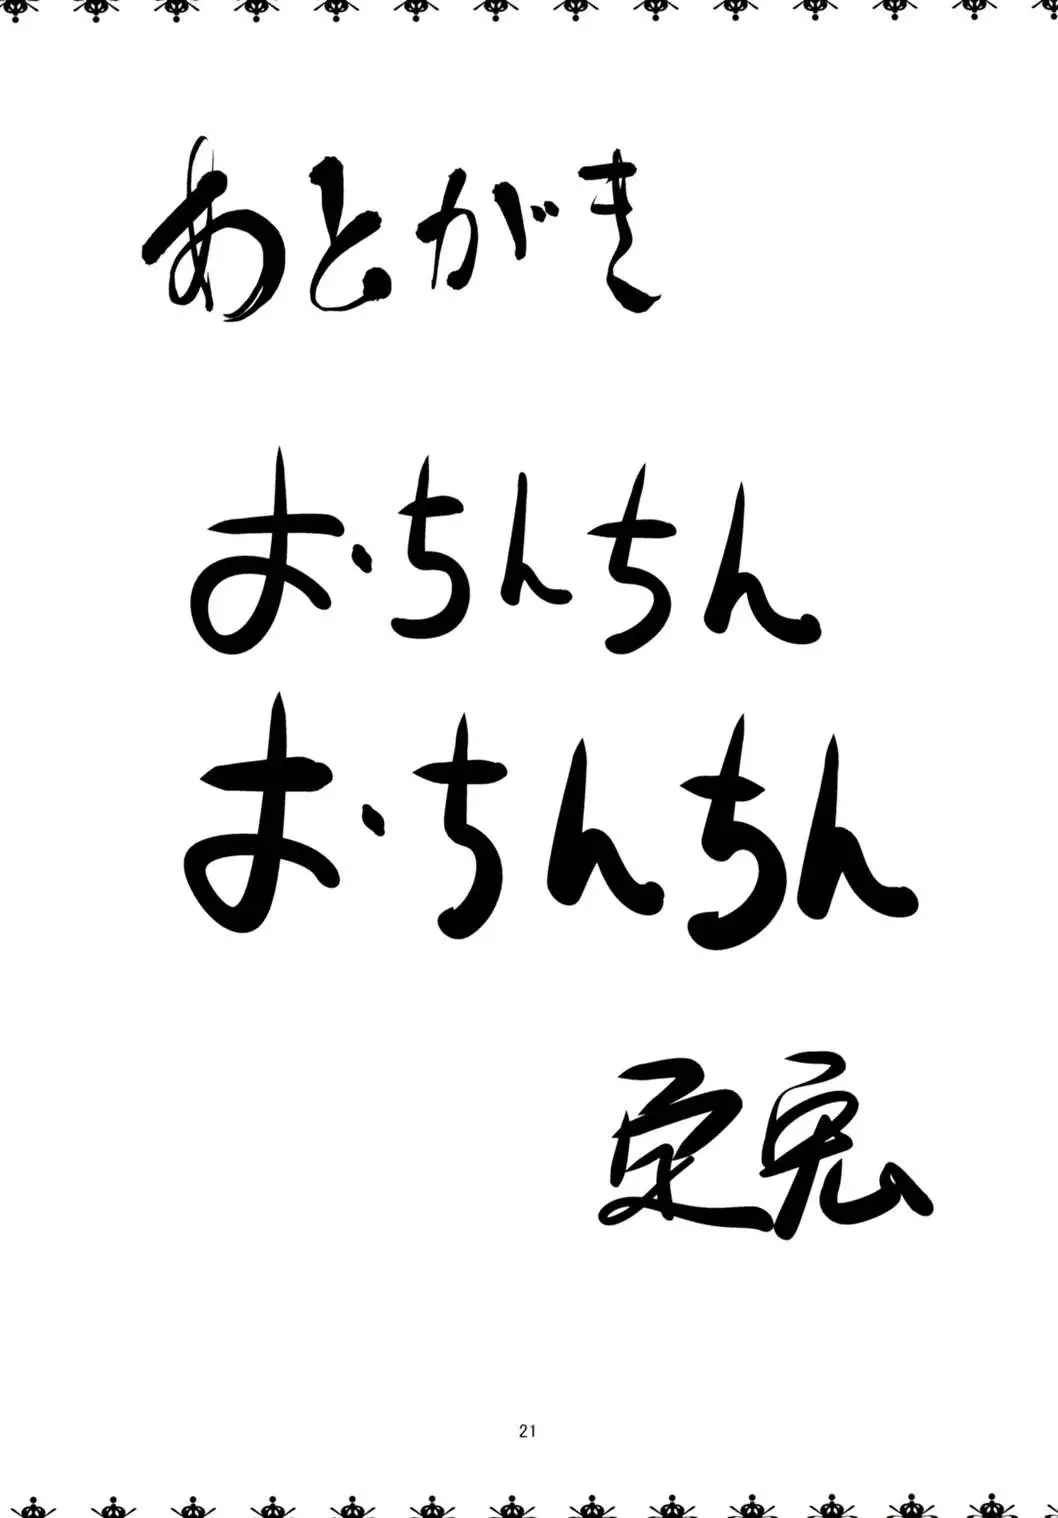 あとがき
おちんちん
おちんちん
兎
21